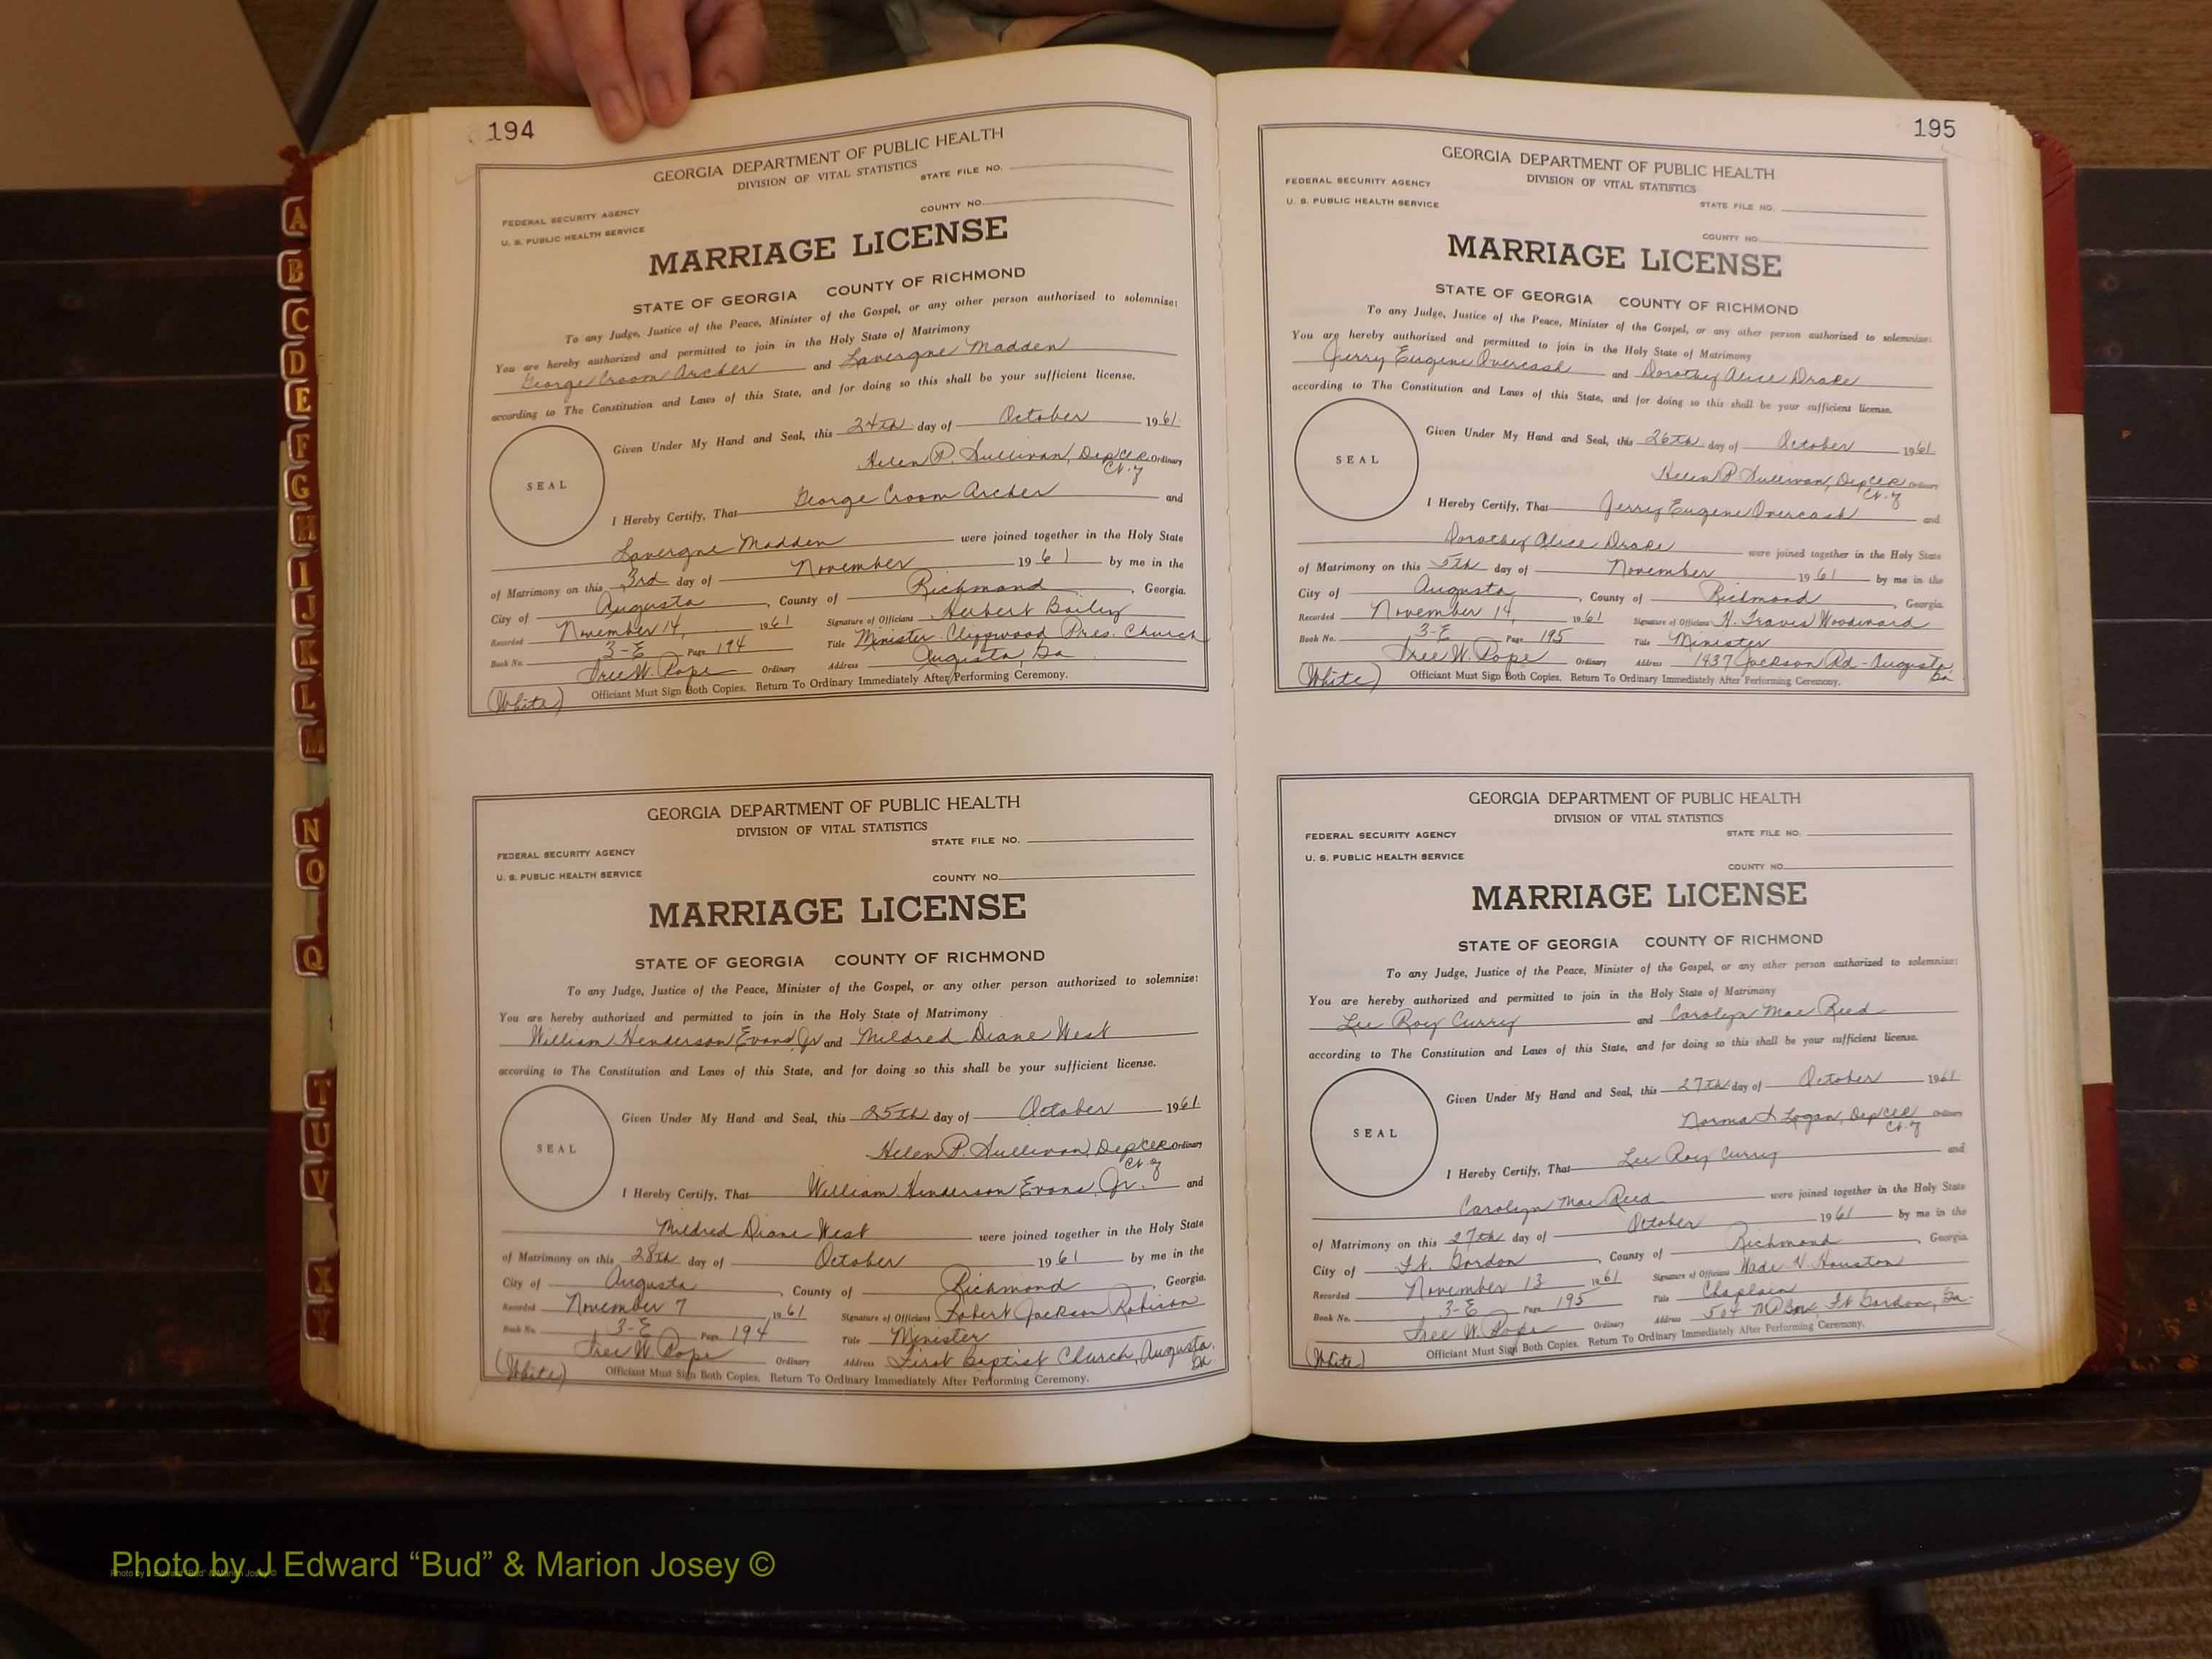 194
GEORGIA DEPARTMENT OF PUBLIC HEALTH
DIVISION OF VITAL STATISTICS
STATE FILE NO.
FEDERAL SECURITY AGENCY
COUNTY NO.
U. S. PUBLIC HEALTH SERVICE
MARRIAGE LICENSE
STATE OF GEORGIA COUNTY OF RICHMOND
To any Judge, Justice of the Peace, Minister of the Gospel, or any other person authorized to solemnize:
You are hereby authorized and permitted to join in the Holy State of Matrimony
George Croom Archer and Lavergne Madden
according to The Constitution and Laws of this State, and for doing so this shall be your sufficient license.
Given Under My Hand and Seal, this 24th day of October 1961
Helen P. Sullivan, Dep Clk Ordinary
Ct. of
SEAL
I Hereby Certify, That George Croom Archer and
Lavergne Madden were joined together in the Holy State
of Matrimony on this 3rd day of November 1961 by me in the
City of Augusta, County of Richmond, Georgia.
Recorded November 14, 1961 Signature of Officiant Herbert Bailey
Book No. 3-E Page 194 Title Minister Pres. Church
W. Pope Ordinary Address Augusta, Ga
Officiant Must Sign Both Copies. Return To Ordinary Immediately After Performing Ceremony.
(White)
GEORGIA DEPARTMENT OF PUBLIC HEALTH
DIVISION OF VITAL STATISTICS
STATE FILE NO.
FEDERAL SECURITY AGENCY
U. S. PUBLIC HEALTH SERVICE
COUNTY NO.
MARRIAGE LICENSE
STATE OF GEORGIA COUNTY OF RICHMOND
To any Judge, Justice of the Peace, Minister of the Gospel, or any other person authorized to solemnize:
You are hereby authorized and permitted to join in the Holy State of Matrimony
William Henderson Evans Jr and Mildred Diane West
according to The Constitution and Laws of this State, and for doing so this shall be your sufficient license.
Given Under My Hand and Seal, this 25th day of October 1961
SEAL
Helen P. Sullivan, Dep Clk Ordinary
Ct. of
I Hereby Certify, That William Henderson Evans, Jr. and
Mildred Diane West were joined together in the Holy State
of Matrimony on this 28th day of October 1961 by me in the
City of Augusta, County of Richmond, Georgia.
Recorded November 7, 1961 Signature of Officiant Robert Jackson Robinson
Book No. 3-E Page 194 Title Minister
W. Pope Ordinary Address First Baptist Church, Augusta, Ga.
(White) Officiant Must Sign Both Copies. Return To Ordinary Immediately After Performing Ceremony.
195
GEORGIA DEPARTMENT OF PUBLIC HEALTH
DIVISION OF VITAL STATISTICS
FEDERAL SECURITY AGENCY
U. S. PUBLIC HEALTH SERVICE
STATE FILE NO.
COUNTY NO.
MARRIAGE LICENSE
STATE OF GEORGIA COUNTY OF RICHMOND
To any Judge, Justice of the Peace, Minister of the Gospel, or any other person authorized to solemnize:
You are hereby authorized and permitted to join in the Holy State of Matrimony
Jerry Eugene Overcash and Dorothy Alice Drake
according to The Constitution and Laws of this State, and for doing so this shall be your sufficient license.
Given Under My Hand and Seal, this 26th day of October 1961
SEAL
Helen P. Sullivan, Dep Clk Ordinary
Ct. of
I Hereby Certify, That Jerry Eugene Overcash and
Dorothy Alice Drake were joined together in the Holy State
of Matrimony on this 5th day of November 1961 by me in the
City of Augusta, County of Richmond, Georgia.
Recorded November 14, 1961 Signature of Officiant H. Travis Woodward
Book No. 3-E Page 195 Title Minister
W. Pope Ordinary Address 1437 Jackson Rd - Augusta, Ga
(White) Officiant Must Sign Both Copies. Return To Ordinary Immediately After Performing Ceremony.
GEORGIA DEPARTMENT OF PUBLIC HEALTH
DIVISION OF VITAL STATISTICS
FEDERAL SECURITY AGENCY
STATE FILE NO.
U. S. PUBLIC HEALTH SERVICE
COUNTY NO.
MARRIAGE LICENSE
STATE OF GEORGIA COUNTY OF RICHMOND
To any Judge, Justice of the Peace, Minister of the Gospel, or any other person authorized to solemnize:
You are hereby authorized and permitted to join in the Holy State of Matrimony
Lee Roy Curry and Carolyn Mae Reed
according to The Constitution and Laws of this State, and for doing so this shall be your sufficient license.
Given Under My Hand and Seal, this 27th day of October 1961
SEAL
Norma L Logan, Dep Clk Ordinary
Ct. of
I Hereby Certify, That Lee Roy Curry and
Carolyn Mae Reed were joined together in the Holy State
of Matrimony on this 27th day of October 1961 by me in the
City of Ft. Gordon, County of Richmond, Georgia
Recorded November 13 1961 Signature of Officiant Wade H. Houston
Book No. 3-E Page 195 Title Chaplain
W. Pope Ordinary Address Ft Gordon, Ga.
(White) Officiant Must Sign Both Copies. Return To Ordinary Immediately After Performing Ceremony.
A
B
C
D
E
F
G
H
I
J
K
L
M
N
O
Q
T
U
V
X
Y
Photo by J Edward “Bud” & Marion Josey ©
Photo by J Edward "Bud" & Marion Josey ©